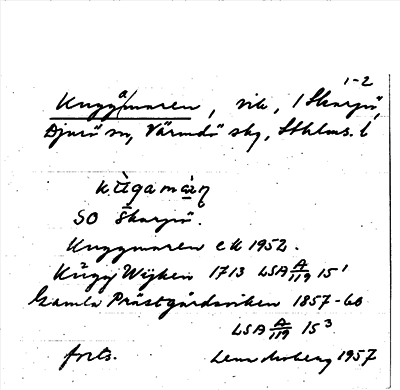 1-2
Kuggamaren, vik, / Skarpö,
Djurö sn, Värmdö skg, Sthlms. l
kùgamàn
SO Skarpö.
Kuggmaren ek 1952.
Kugg Wijken 1713 LSA A/119 15¹
Gamla Prästgårdsviken 1857-60
LSA A/119 15³
forts. 1957